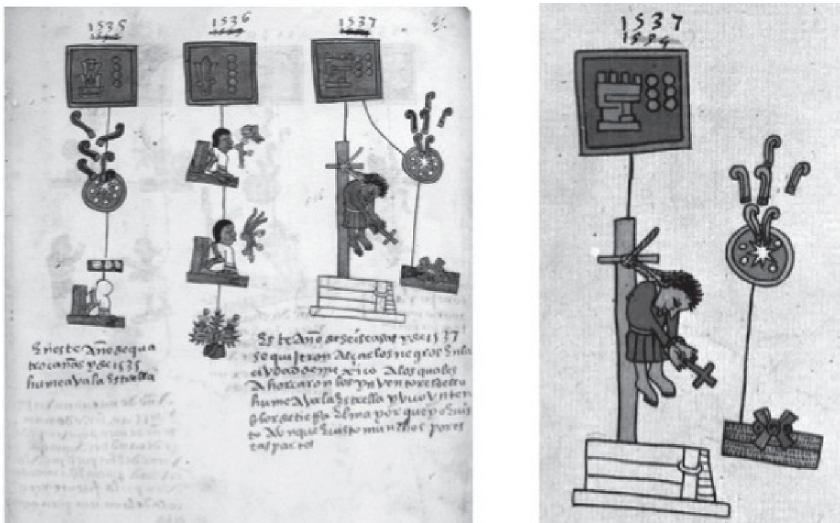 1535
1536
1537
Eneste Año de qua
tro cañas y de 1535
humeava la estrella
Este Año de seis casas y de 1537
se quisiron Alçar los negros en la
ciudad de mexico A los quales
Ahorcaron los inventores dello
humeava la estrella y uvo un ten
blor de tierra el mayor que yo e vis
to Aunque e visto munchos por es
tas partes
1537